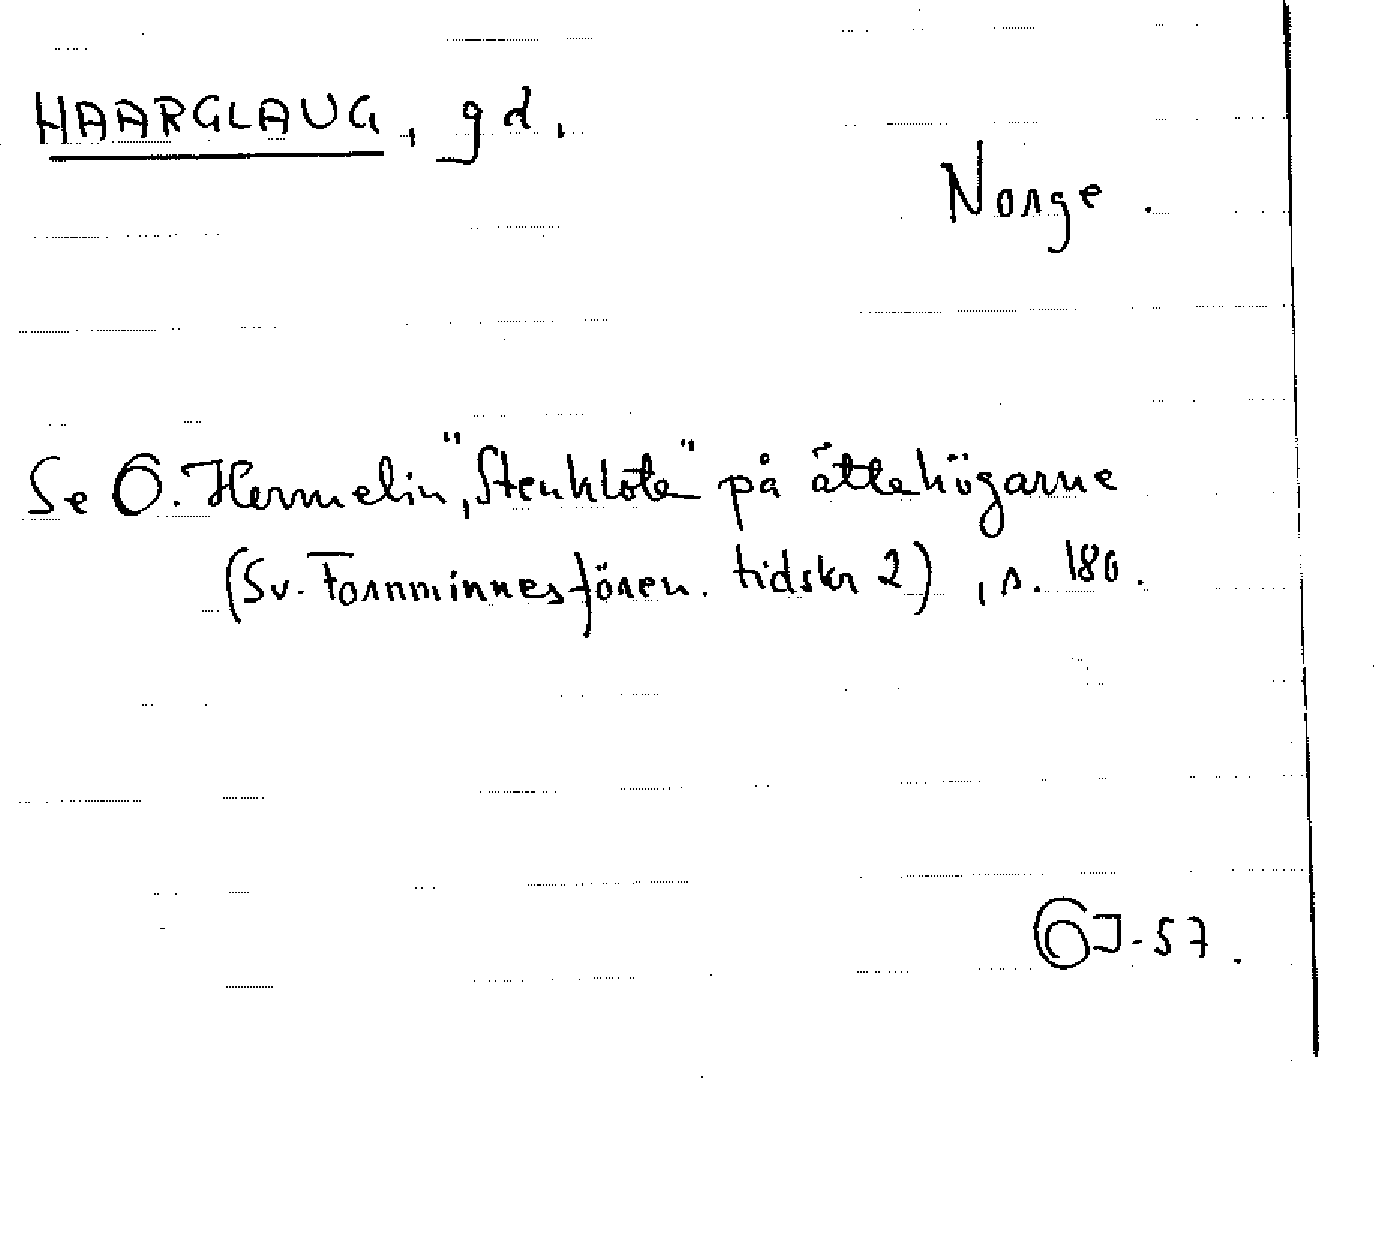 HAARGLAUG, gd.
Norge.
Se O. Hermelin, "Stenklot" på ättehögarne
(Sv. Fornminnesfören. tidskr 2), s. 180.
OJ-57.